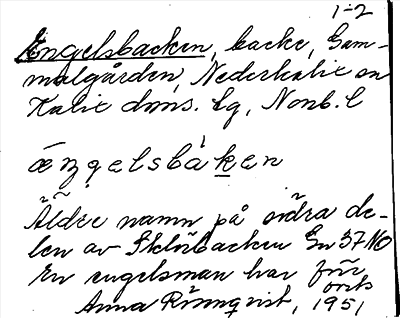 1-2
Engelsbacken, backe, Gam-
malgården, Nederkalix sn
Kalix doms. lg, Nonb. l
ængelsbaken
Äldre namn på södra de-
len av Sklörbacken En 37 NO
En engelsman har förr
Anna Rönnqvist, 1951